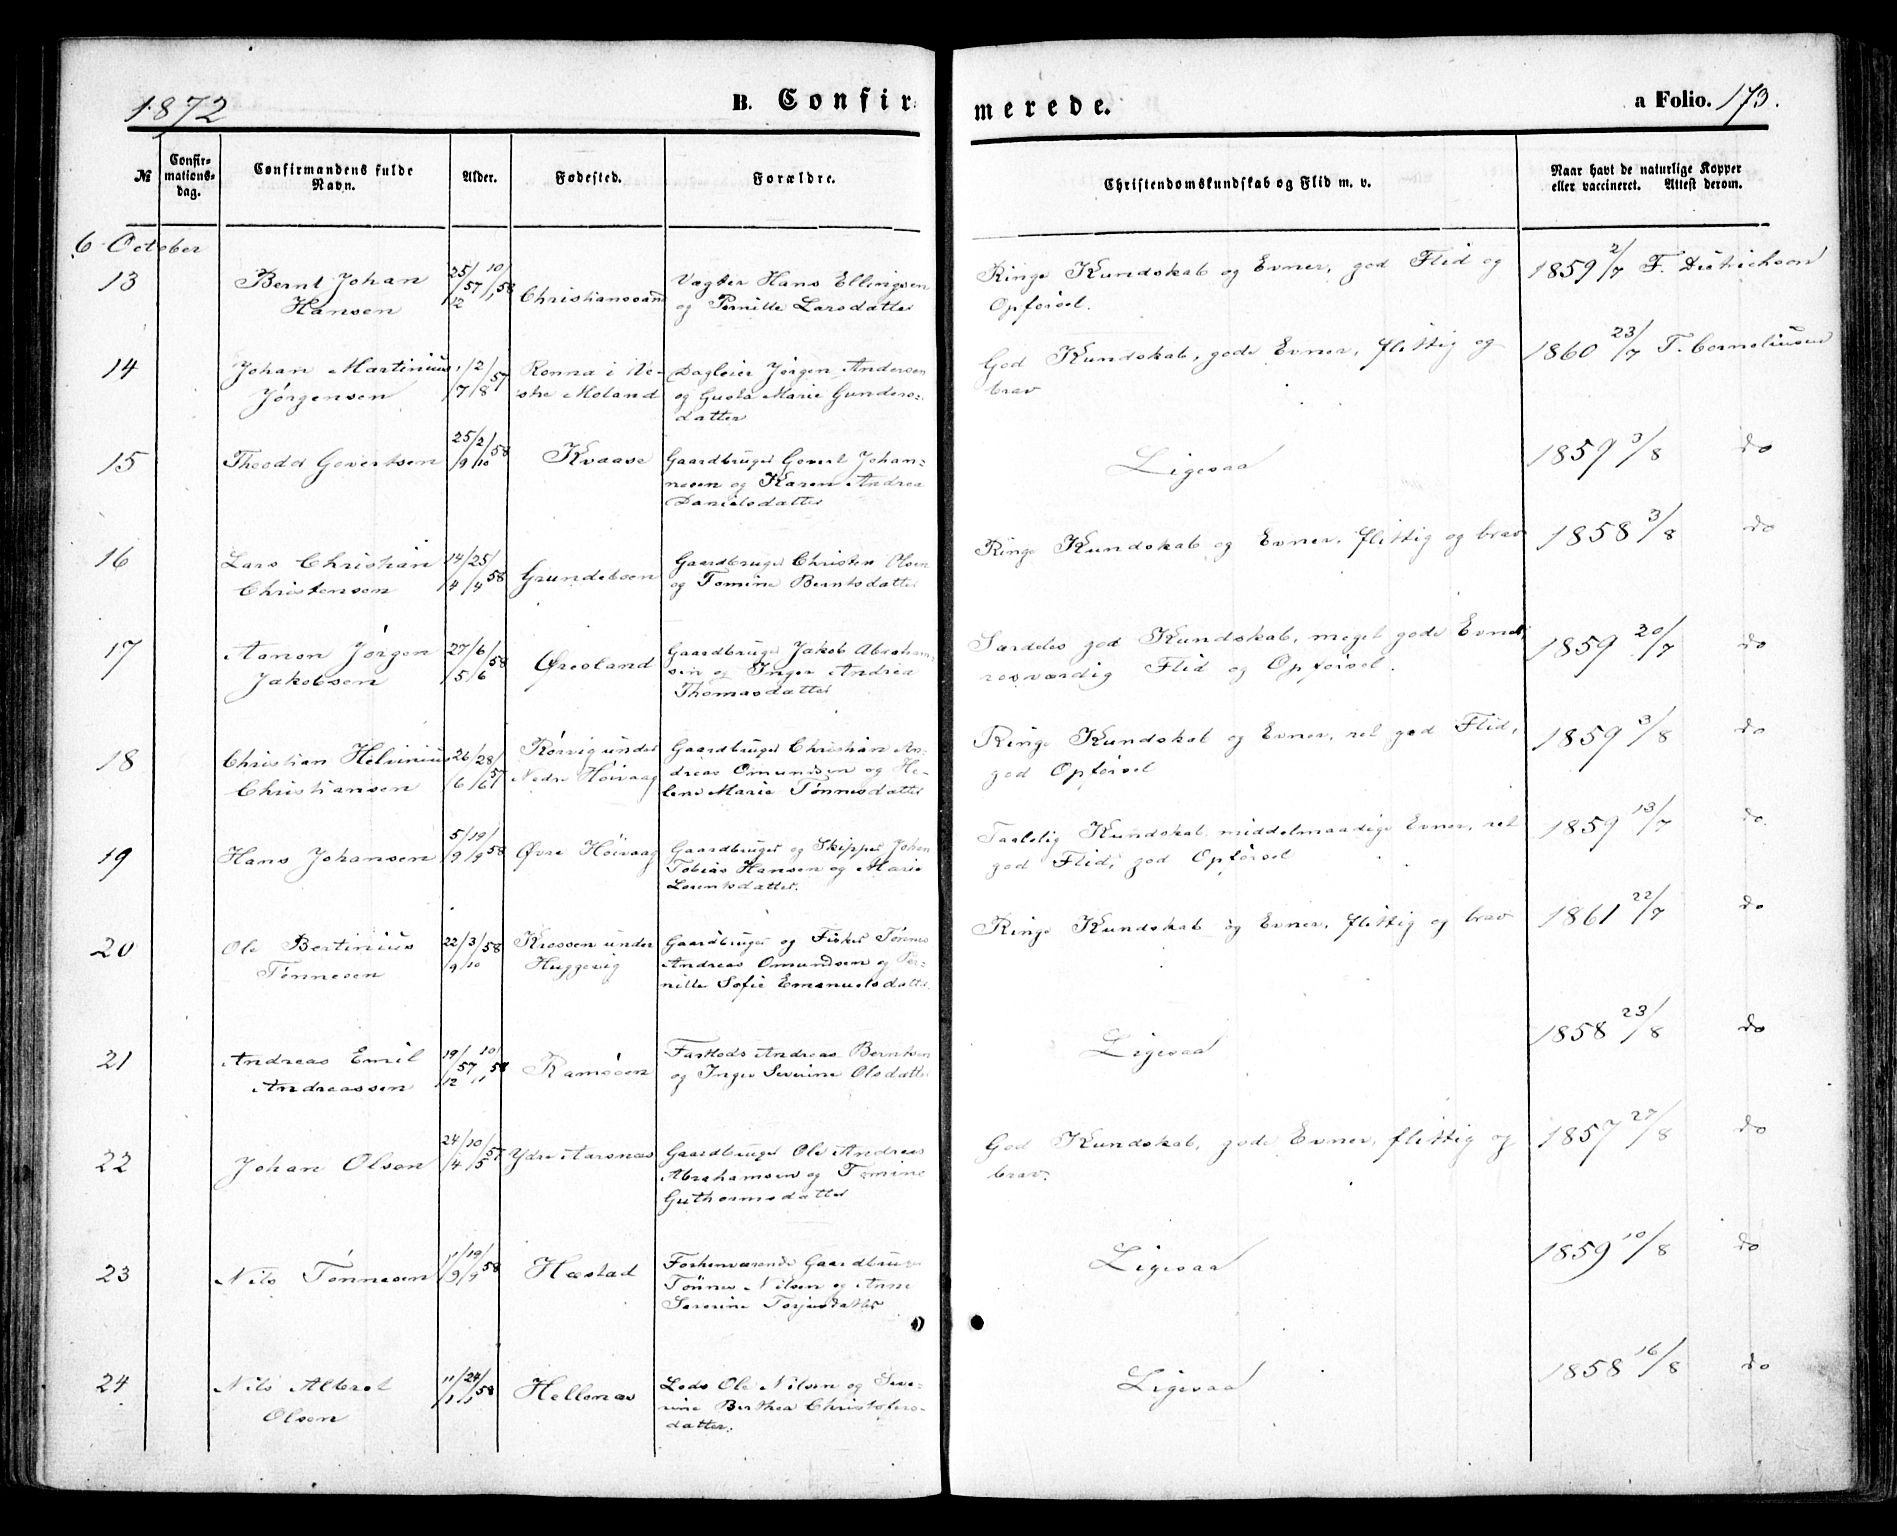 1872
B. Confirmerede.
a Folio. 173.
№
Confirmations-dag.
Confirmandens fulde Navn.
Alder.
Fødested.
Forældre.
Christendomskundskab og Flid m. v.
Naar havt de naturlige Kopper eller vaccineret. Attest derom.
6 October
13 Bernt Johan Hansen 25/12 57 10/1 58 Christianssand
Vægter Hans Ellingsen
og Pernille Larsdatter
Ringe Kundskab og Evner, god Flid og
Opførsel.
1859 2/7 F. Ditrichson
14 Johan Martinius Jørgensen 1/7 2/8 57 Ronna i
Moland
Dagleier Jørgen Andersen
og Gusta Marie Gunders-
datter
God Kundskab, gode Evner, flittig og
brav
1860 23/7 T. Corneliusen
15 Theodor Govertsen 25/9 2/10 58 Kvaase
Gaardbruger Govert Johan-
nesen og Karen Andrea
Danielsdatter
Ligesaa
1859 3/8 do
16 Lars Christian Christensen 14/4 25/4 58 Grundesoen
Gaardbruger Christen Olsen
og Tomine Berntsdatter
Ringe Kundskab og Evner, flittig og brav
1858 3/8 do
17 Aanon Jørgen Jakobsen 27/5 6/6 58 Øresland
Gaardbruger Jakob Abraham-
sen og Inger Andrea
Thomasdatter
Særdeles god Kundskab, meget gode Evner,
rosværdig Flid og Opførsel.
1859 20/7 do
18 Christian Helvinius Christiansen 26/6 28/6 57 Rørvig under
Nedre Høivaag
Gaardbruger Christian An-
dreas Omundsen og He-
lene Marie Tønnesdatter
Ringe Kundskab og Evner, ret god Flid,
god Opførsel
1859 3/8 do
19 Hans Johansen 5/9 19/9 58 Øvre Høivaag
Gaardbruger og Skipper Johan
Tobias Hansen og Marie
Lorentsdatter.
Taalelig Kundskab middelmaadige Evner, ret
god Flid, god Opførsel
1859 13/7 do.
20 Ole Bertinius Tønnesen 22/9 3/10 58 Krossen under
Huggevig
Gaardbruger og Fisker Tønnes
Andreas Omundsen og Per-
nille Sofie Emanuelsdatter.
Ringe Kundskab og Evner, flittig og brav
1861 22/7 do
21 Andreas Emil Andreassen 19/12 57 10/1 58 Ramsøen
Fastlods Andreas Berntsen
og Inger Severine Olsdatter
Ligesaa
1858 23/8 do
22 Johan Olsen 24/4 10/5 57 Ydre Aarsnæs
Gaardbruger Ole Andreas
Abrahamsen og Tomine
Guthormsdatter
God Kundskab, gode Evner, flittig og
brav.
1857 27/8 do
23 Nils Tønnesen 1/9 19/9 58 Hæstad
Forhenværende Gaardbruger
Tønnes Nilsen og Anne
Severine Torjusdatter
Ligesaa
1859 10/8 do
24 Nils Albret Olsen 11/1 24/1 58 Hellenæs
Lods Ole Nilsen og Seve-
rine Berthea Christofers-
datter.
Ligesaa
1858 16/8 do